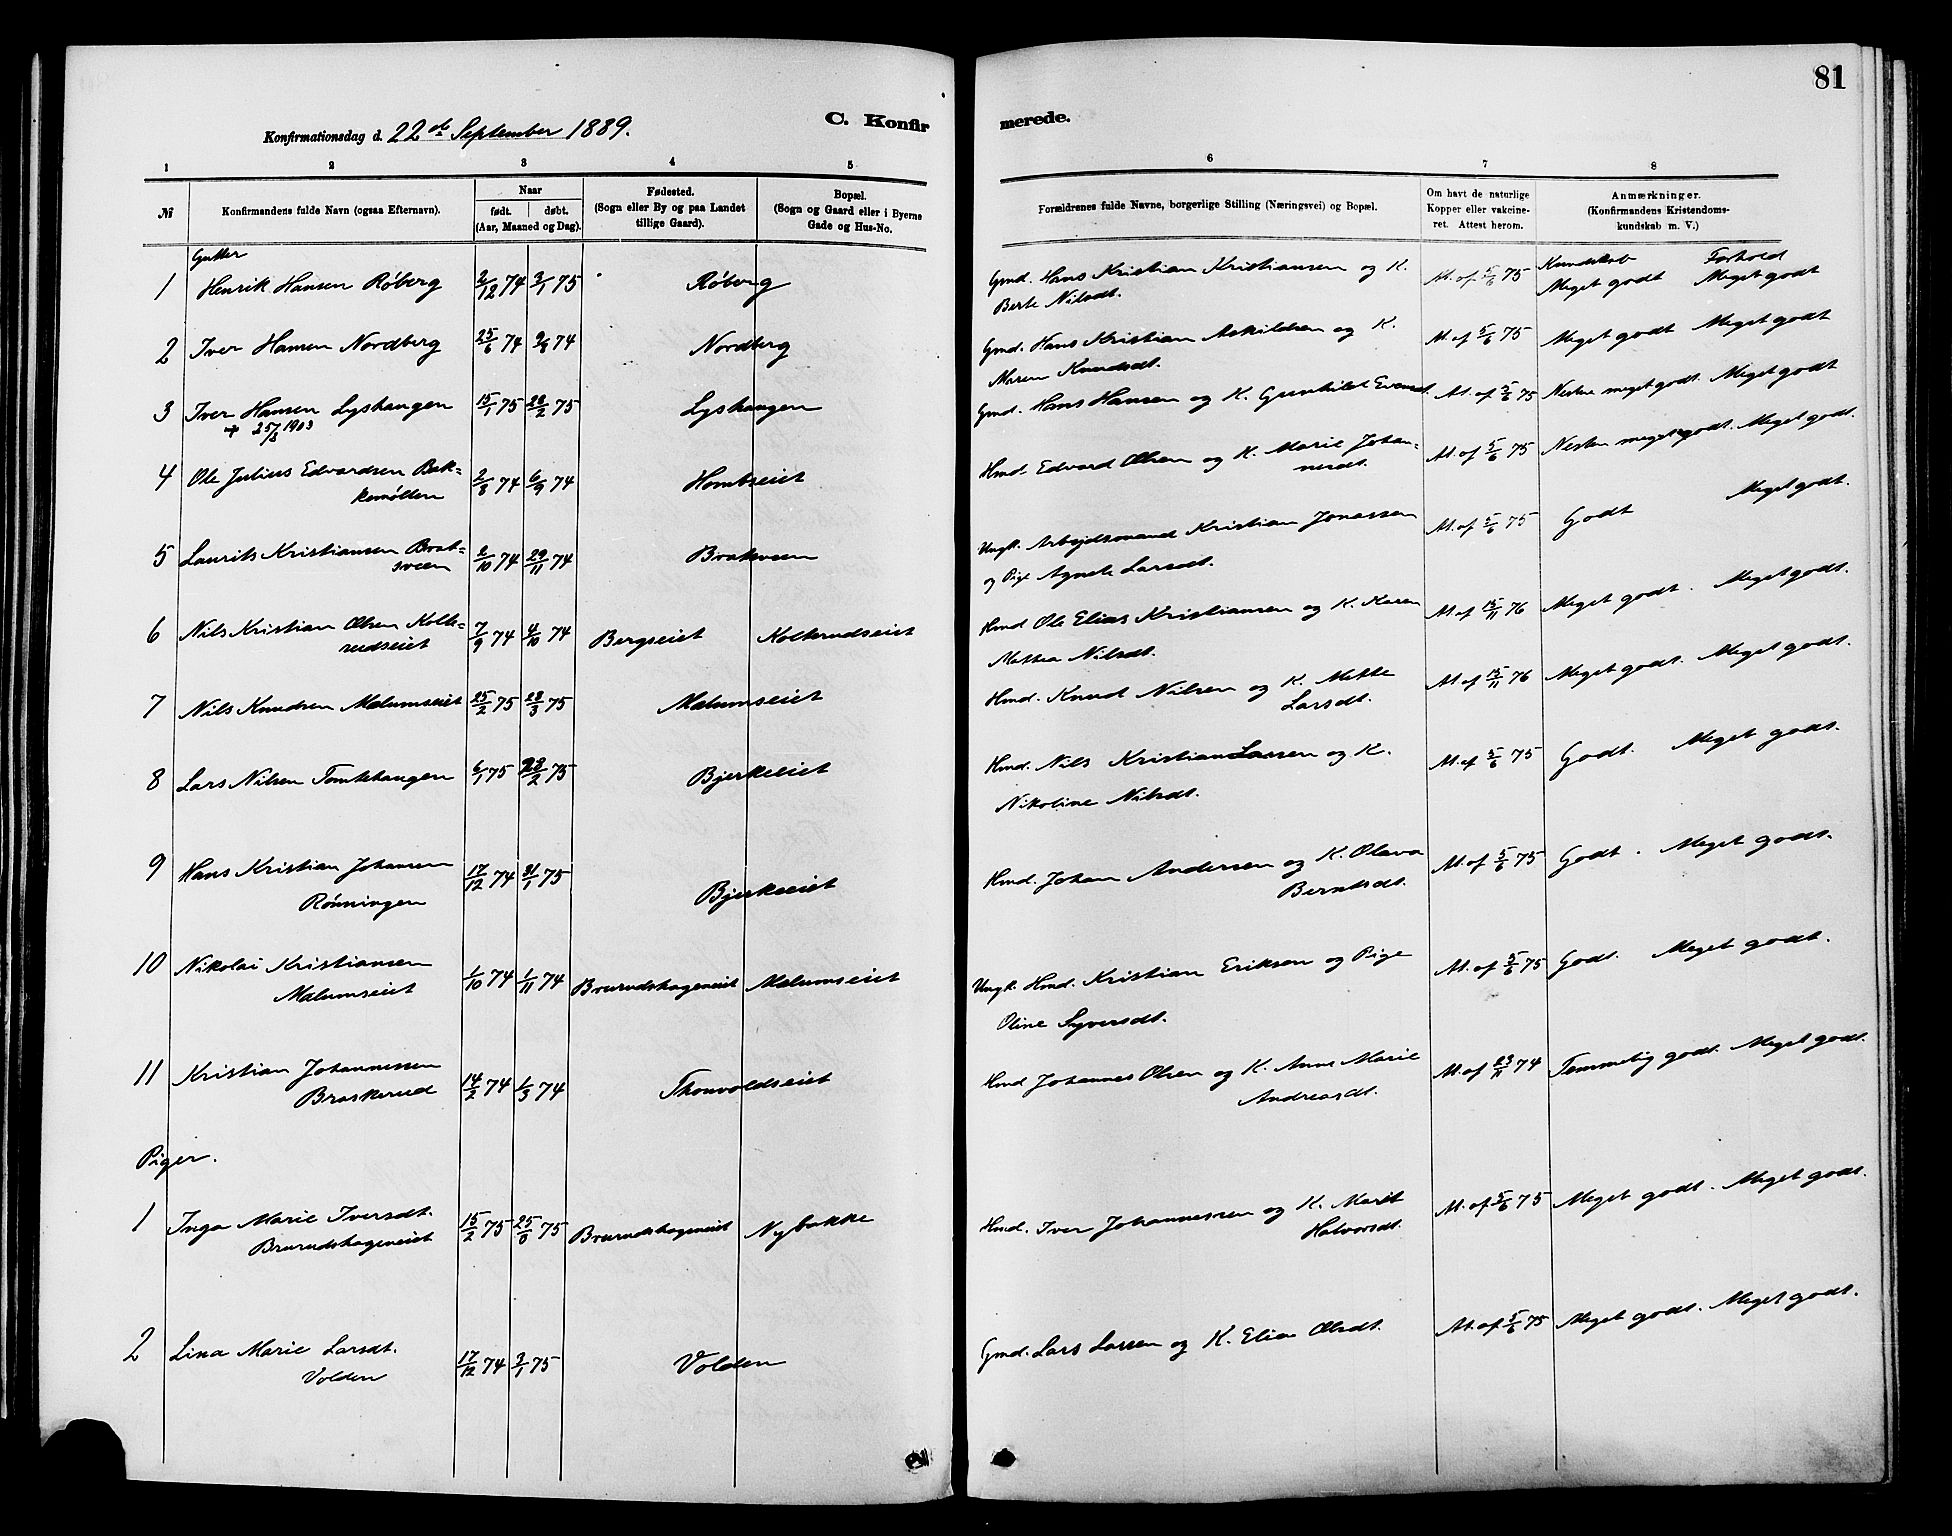 81
Konfirmationsdag d. 22de September 1889.
C. Konfirmerede.
1 2 3 4 5 6 7 8
№
Konfirmandens fulde Navn (ogsaa Efternavn).
Naar
født. døbt.
(Aar, Maaned og Dag).
Fødested.
(Sogn eller By og paa Landet
tillige Gaard).
Bopæl.
(Sogn og Gaard eller i Byerne
Gade og Hus-No.
Forældrenes fulde Navne, borgerlige Stilling (Næringsvei) og Bopæl.
Om havt de naturlige
Kopper eller vakcine-
ret. Attest herom.
Anmærkninger.
(Konfirmandens Kristendoms-
kundskab m. V.)
Gutter
Kundskab Forhold
1 Henrik Hansen Røberg 2/12 74 3/1 75 Røberg Gmd. Hans Kristian Kristiansen og K. At. af 5/6 75 Meget godt Meget godt
Berte Nilsdt.
2 Iver Hansen Nordberg 25/6 74 9/8 74 Nordberg Gmd. Hans Kristian Askildsen og K. At. af 5/6 75 Meget godt Meget godt
Maren Knudsdt.
3 Iver Hansen Lyshaugen 15/1 75 28/2 75 Lyshaugen Gmd. Hans Hansen og K. Gunhild Evensdt. At. af 5/6 75 Nesten meget godt. Meget godt
+ 25/8 1903
4 Ole Julius Edvardsen Bak- 2/8 74 6/9 74 Hombseiet Hmd. Edvard Olsen og K. Marie Johan- At. af 5/6 75 Nesten meget godt. Meget godt.
kemøllen
nesdt.
5 Laurits Kristiansen Brat- 2/10 74 29/11 74 Bratsveen Ungk. Arbejdsmand Kristian Jonassen At. af 5/6 75 Godt Meget godt.
sveen
og Pige Agnete Larsdt.
6 Nils Kristian Olsen Kolke- 7/9 74 4/10 74 Bergseiet Kolkerudseiet Hmd Ole Elias Kristiansen og K. Karen At. af 15/11 76 Meget godt. Meget godt.
rudseiet
Mathea Nilsdt.
7 Nils Knudsen Malumseiet 25/2 75 28/3 75 Malumseiet Hmd. Knud Nilsen og K. Mette At. af 15/11 76 Meget godt. Meget godt.
Larsdt.
8 Lars Nilsen Tomtehaugen 6/1 75 28/2 75 Bjerkeeiet Hmd. Nils Kristian Larsen og K. At. af 5/6 75 Godt. Meget godt.
Nikoline Nilsdt.
9 Hans Kristian Johansen 17/12 74 31/1 75 Bjerkeeiet Hmd. Johan Andersen og K. Olava At. af 5/6 75 Godt. Meget godt.
Rønningen
Berntsdt.
10 Nikolai Kristiansen 1/10 74 1/11 74 Brurudshageneiet Malumseiet Ungk. Hmd. Kristian Eriksen og Pige At. af 5/6 75 Godt. Meget godt.
Malumseiet
Oline Syversdt.
11 Kristian Johannessen 14/2 74 1/3 74 Thonvoldseiet Hmd Johannes Olsen og K. Anne Marie At. af 23/11 74 Temmelig godt. Meget godt.
Braskerud
Andreasdt.
Piger.
1 Inga Marie Iversdt. 15/2 75 Brurudshageneiet Nybakke Hmd. Iver Johannessen og K. Marit At. af 5/6 75 Meget godt. Meget godt.
Brurudshageneiet
Halvorsdt.
2 Lina Marie Larsdt. 17/12 74 3/1 75 Volden Gmd. Lars Larsen og K. Elia Olsdt. At. af 5/6 75 Meget godt. Meget godt.
Volden